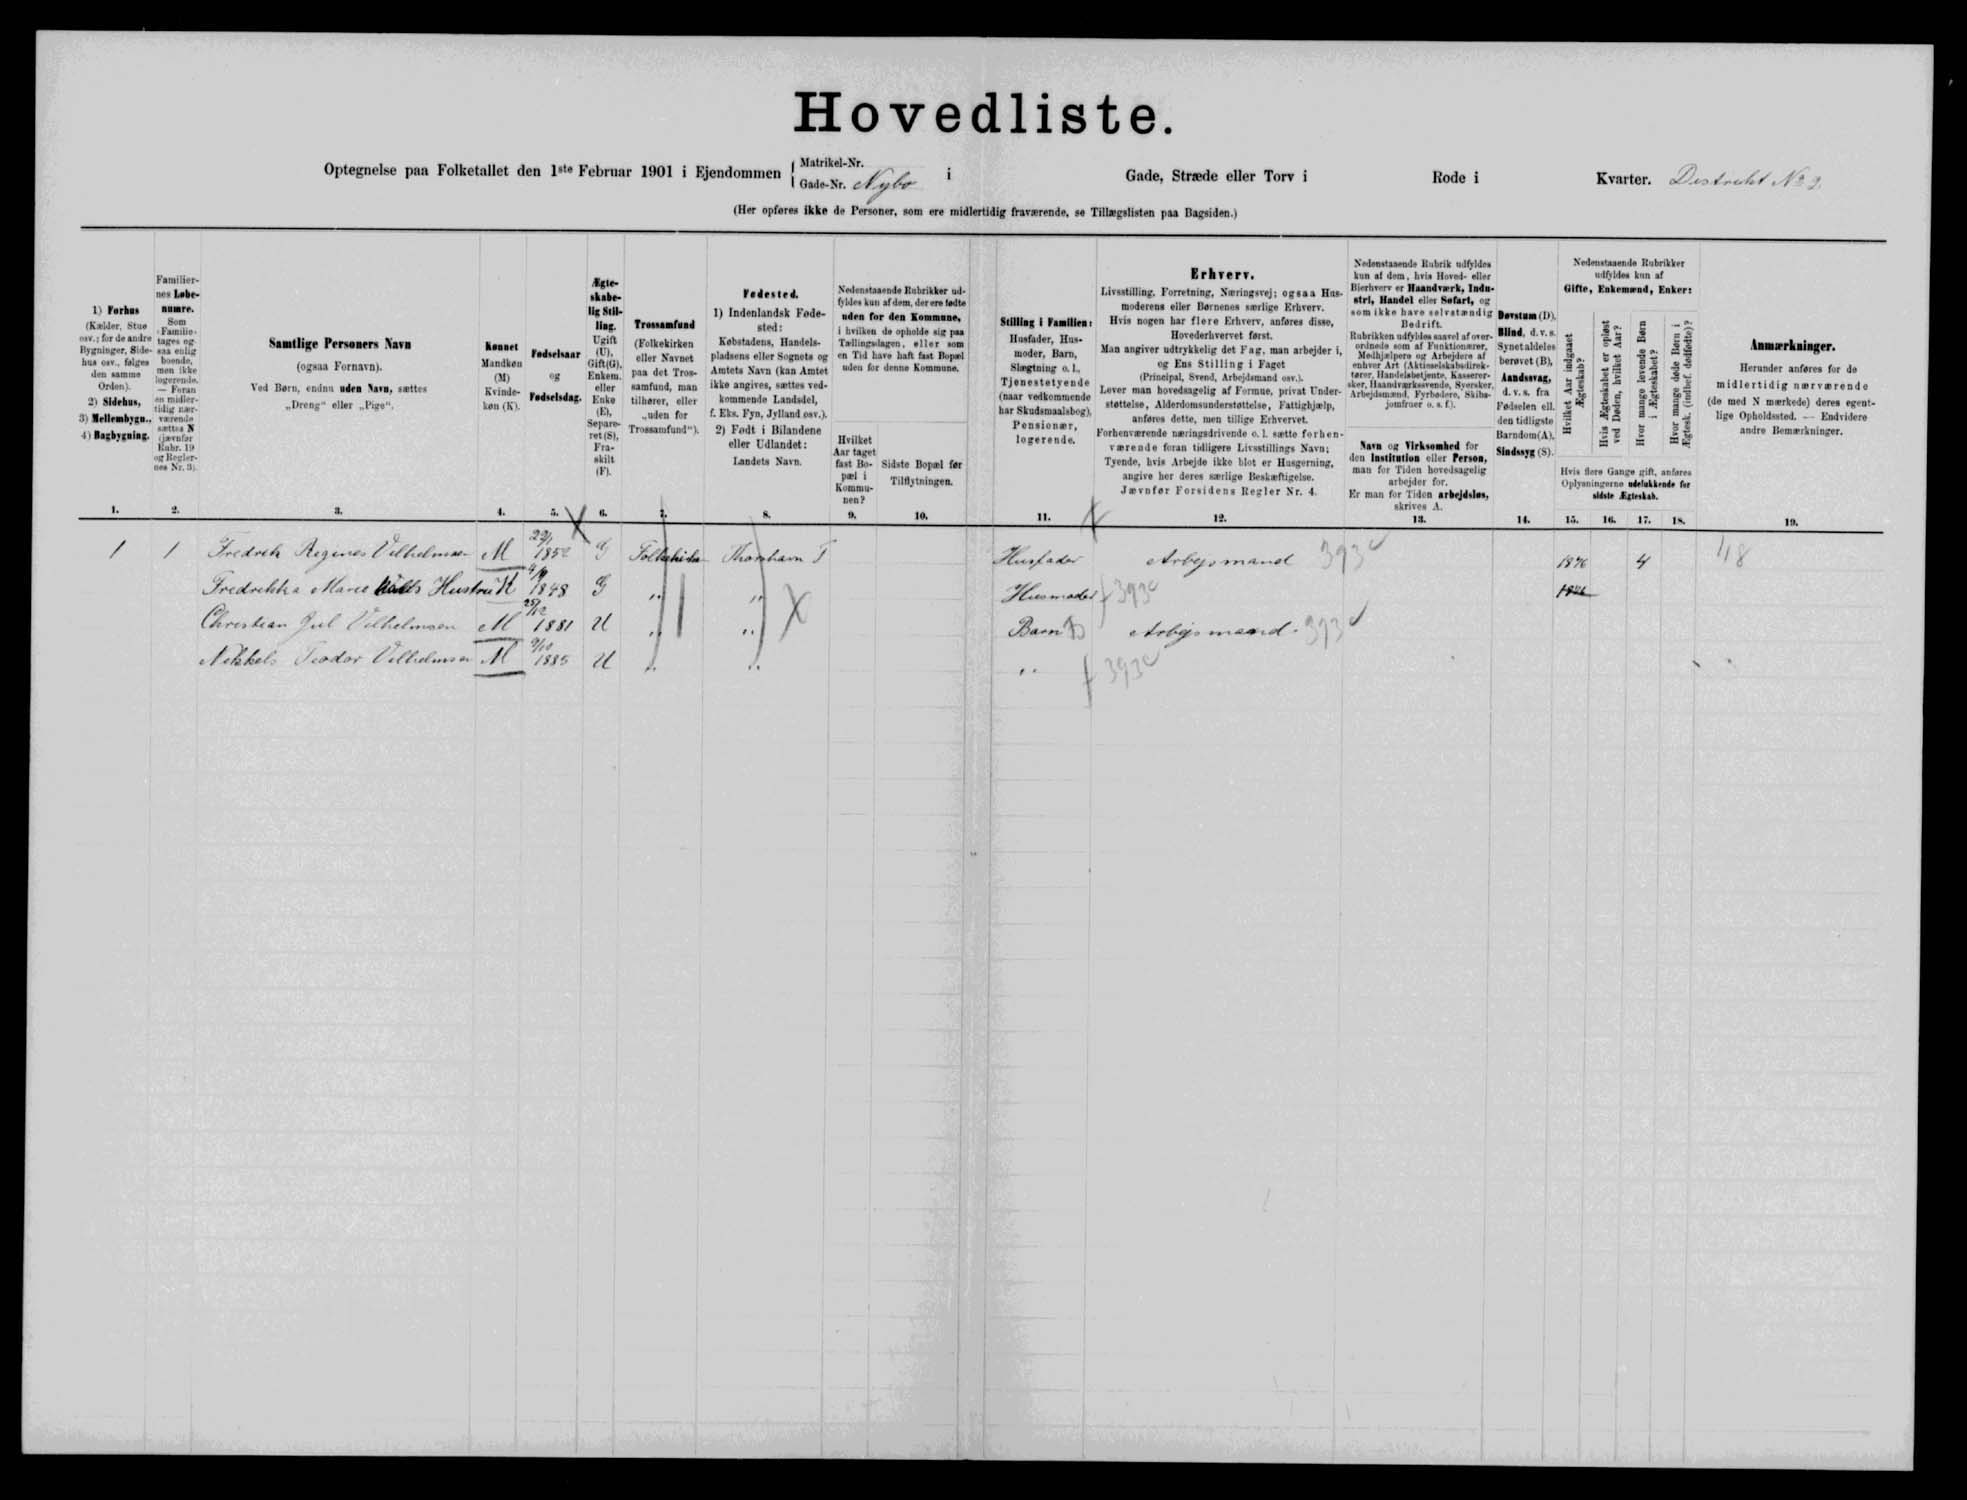 Hovedliste.
Optegnelse paa Folketallet den 1ste Februar 1901 i Ejendommen { Matrikel-Nr. Gade-Nr. Nybo i Gade, Stræde eller Torv i Rode i Kvarter. Distrikt No 2.
(Her opføres ikke de Personer, som ere midlertidig fraværende, se Tillægslisten paa Bagsiden.)
1) Forhus
(Kælder, Stue
osv.; for de andre
Bygninger, Side-
hus osv., følges
den samme
Orden).
2) Sidehus,
3) Mellembygn.,
4) Bagbygning.
Familier-
nes Løbe-
numre.
Som
Familie
tages og-
saa enlig
boende,
men ikke
logerende.
— Foran
en midler-
tidig nær-
værende
sættes N
(jævnfør
Rubr. 19
og Regler-
nes Nr. 3).
Samtlige Personers Navn
(ogsaa Fornavn).
Ved Børn, endnu uden Navn, sættes
„Dreng“ eller „Pige“.
Kønnet
Mandkøn
(M)
Kvinde-
køn (K).
Fødselsaar
og
Fødselsdag.
Ægte-
skabe-
lig Stil-
ling.
Ugift
(U),
Gift(G),
Enkem.
eller
Enke
(E),
Separe-
ret (S),
Fra-
skilt
(F).
Trossamfund
(Folkekirken
eller Navnet
paa det Tros-
samfund, man
tilhører, eller
„uden for
Trossamfund“).
Fødested.
1) Indenlandsk Føde-
sted:
Købstadens, Handels-
pladsens eller Sognets og
Amtets Navn (kan Amtet
ikke angives, sættes ved-
kommende Landsdel,
f. Eks. Fyn, Jylland osv.).
2) Født i Bilandene
eller Udlandet:
Landets Navn.
Nedenstaaende Rubrikker ud-
fyldes kun af dem, der ere fødte
uden for den Kommune,
i hvilken de opholde sig paa
Tællingsdagen, eller som
en Tid have haft fast Bopæl
uden for denne Kommune.
Hvilket
Aar taget
fast Bo-
pæl i
Kommu-
nen?
Sidste Bopæl før
Tilflytningen.
Stilling i Familien:
Husfader, Hus-
moder, Barn,
Slægtning o. l.,
Tjenestetyende
(naar vedkommende
har Skudsmaalsbog),
Pensionær,
logerende.
Erhverv.
Livsstilling, Forretning, Næringsvej; ogsaa Hus-
moderens eller Børnenes særlige Erhverv.
Hvis nogen har flere Erhverv, anføres disse,
Hovederhvervet først.
Man angiver udtrykkelig det Fag, man arbejder i,
og Ens Stilling i Faget
(Principal, Svend, Arbejdsmand osv.).
Lever man hovedsagelig af Formue, privat Under-
støttelse, Alderdomsunderstøttelse, Fattighjælp,
anføres dette, men tillige Erhvervet.
Forhenværende næringsdrivende o. l. sætte forhen-
værende foran tidligere Livsstillings Navn;
Tyende, hvis Arbejde ikke blot er Husgerning,
angive her deres særlige Beskæftigelse.
Jævnfør Forsidens Regler Nr. 4.
Nedenstaaende Rubrik udfyldes
kun af dem, hvis Hoved- eller
Bierhverv er Haandværk, Indu-
stri, Handel eller Søfart, og
som ikke have selvstændig
Bedrift.
Rubrikken udfyldes saavel af over-
ordnede som af Funktionærer,
Medhjælpere og Arbejdere af
enhver Art (Aktieselskabsdirek-
tører, Handelsbetjente, Kasserer-
sker, Haandværkssvende, Syersker,
Arbejdsmænd, Fyrbødere, Skibs-
jomfruer o. s. f.).
Navn og Virksomhed for
den Institution eller Person,
man for Tiden hovedsagelig
arbejder for.
Er man for Tiden arbejdsløs,
skrives A.
Døvstum (D).
Blind, d. v. s.
Synet aldeles
berøvet (B),
Aandssvag,
d. v. s. fra
Fødselen ell.
den tidligste
Barndom(A),
Sindssyg (S).
Nedenstaaende Rubrikker
udfyldes kun af
Gifte, Enkemænd, Enker:
Hvilket Aar indgaaet
Ægteskab?
Hvis Ægteskabet er opløst
ved Døden, hvilket Aar?
Hvor mange levende Børn
i Ægteskabet?
Hvor mange døde Børn i
Ægtesk. (indbef. dødfødte)?
Hvis flere Gange gift, anføres
Oplysningerne udelukkende for
sidste Ægteskab.
Anmærkninger.
Herunder anføres for de
midlertidig nærværende
(de med N mærkede) deres egent-
lige Opholdssted. — Endvidere
andre Bemærkninger.
1. 2. 3. 4. 5. 6. 7. 8. 9. 10. 11. 12. 13. 14. 15. 16. 17. 18. 19.
1 1 Fredrik Regines Vilhelmsen M 22/1 1852 G Folkekirken Thorshavn F Husfader Arbejsmand 393c 1876 4 48
Fredrikka Marie Hustru K 1848 G „ „ Husmoder 393c 1876
Christian Jul Vilhelmsen M 25/12 1881 U „ „ Barn Arbejsmand 393
Nikkels Teodor Vilhelmsen M 9/10 1885 U „ „ „ 393c